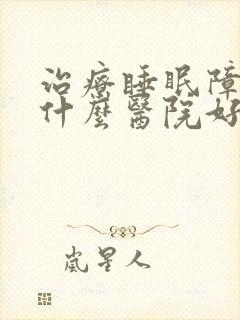 治療睡眠障
什麼醫院好
嵐星人